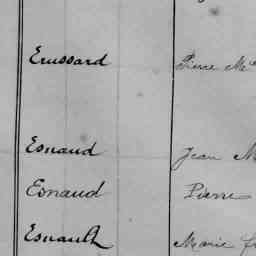 Erussard Pierre M
Esnaud Jean M
Esnaud Pierre
Esnault Marie fr